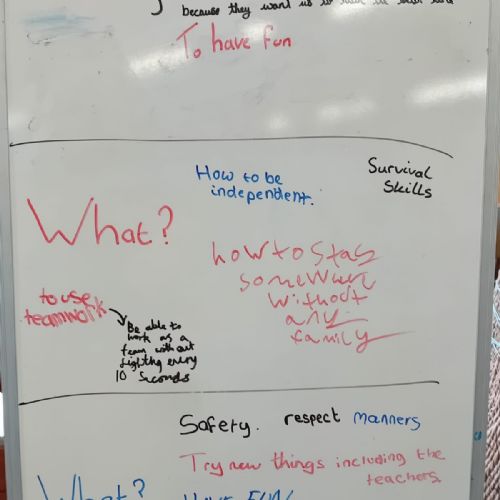 because they want us to have
To have fun
How to be
independent.
Survival
Skills
What?
how to stay
somewhere
without
any
family
to use
teamwork
Be able to
work as a
team without
fighting every
10 Seconds
Safety. respect manners
Try new things including the
teachers.
What?
HAVE FUN